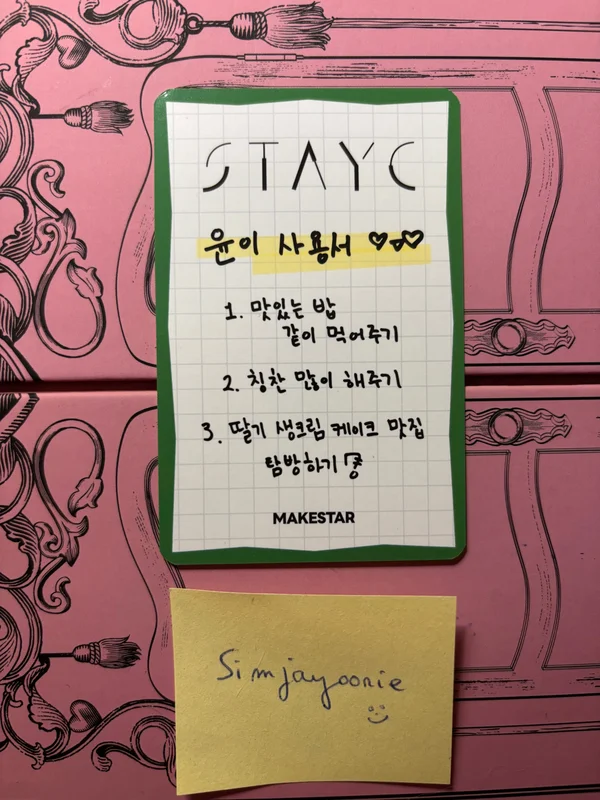 STAYC
윤이 사용서 ♡ㅇ♡
1. 맛있는 밥
같이 먹어주기
2. 칭찬 많이 해주기
3. 딸기 생크림 케이크 맛집
탐방하기
MAKESTAR
Simjayoonie